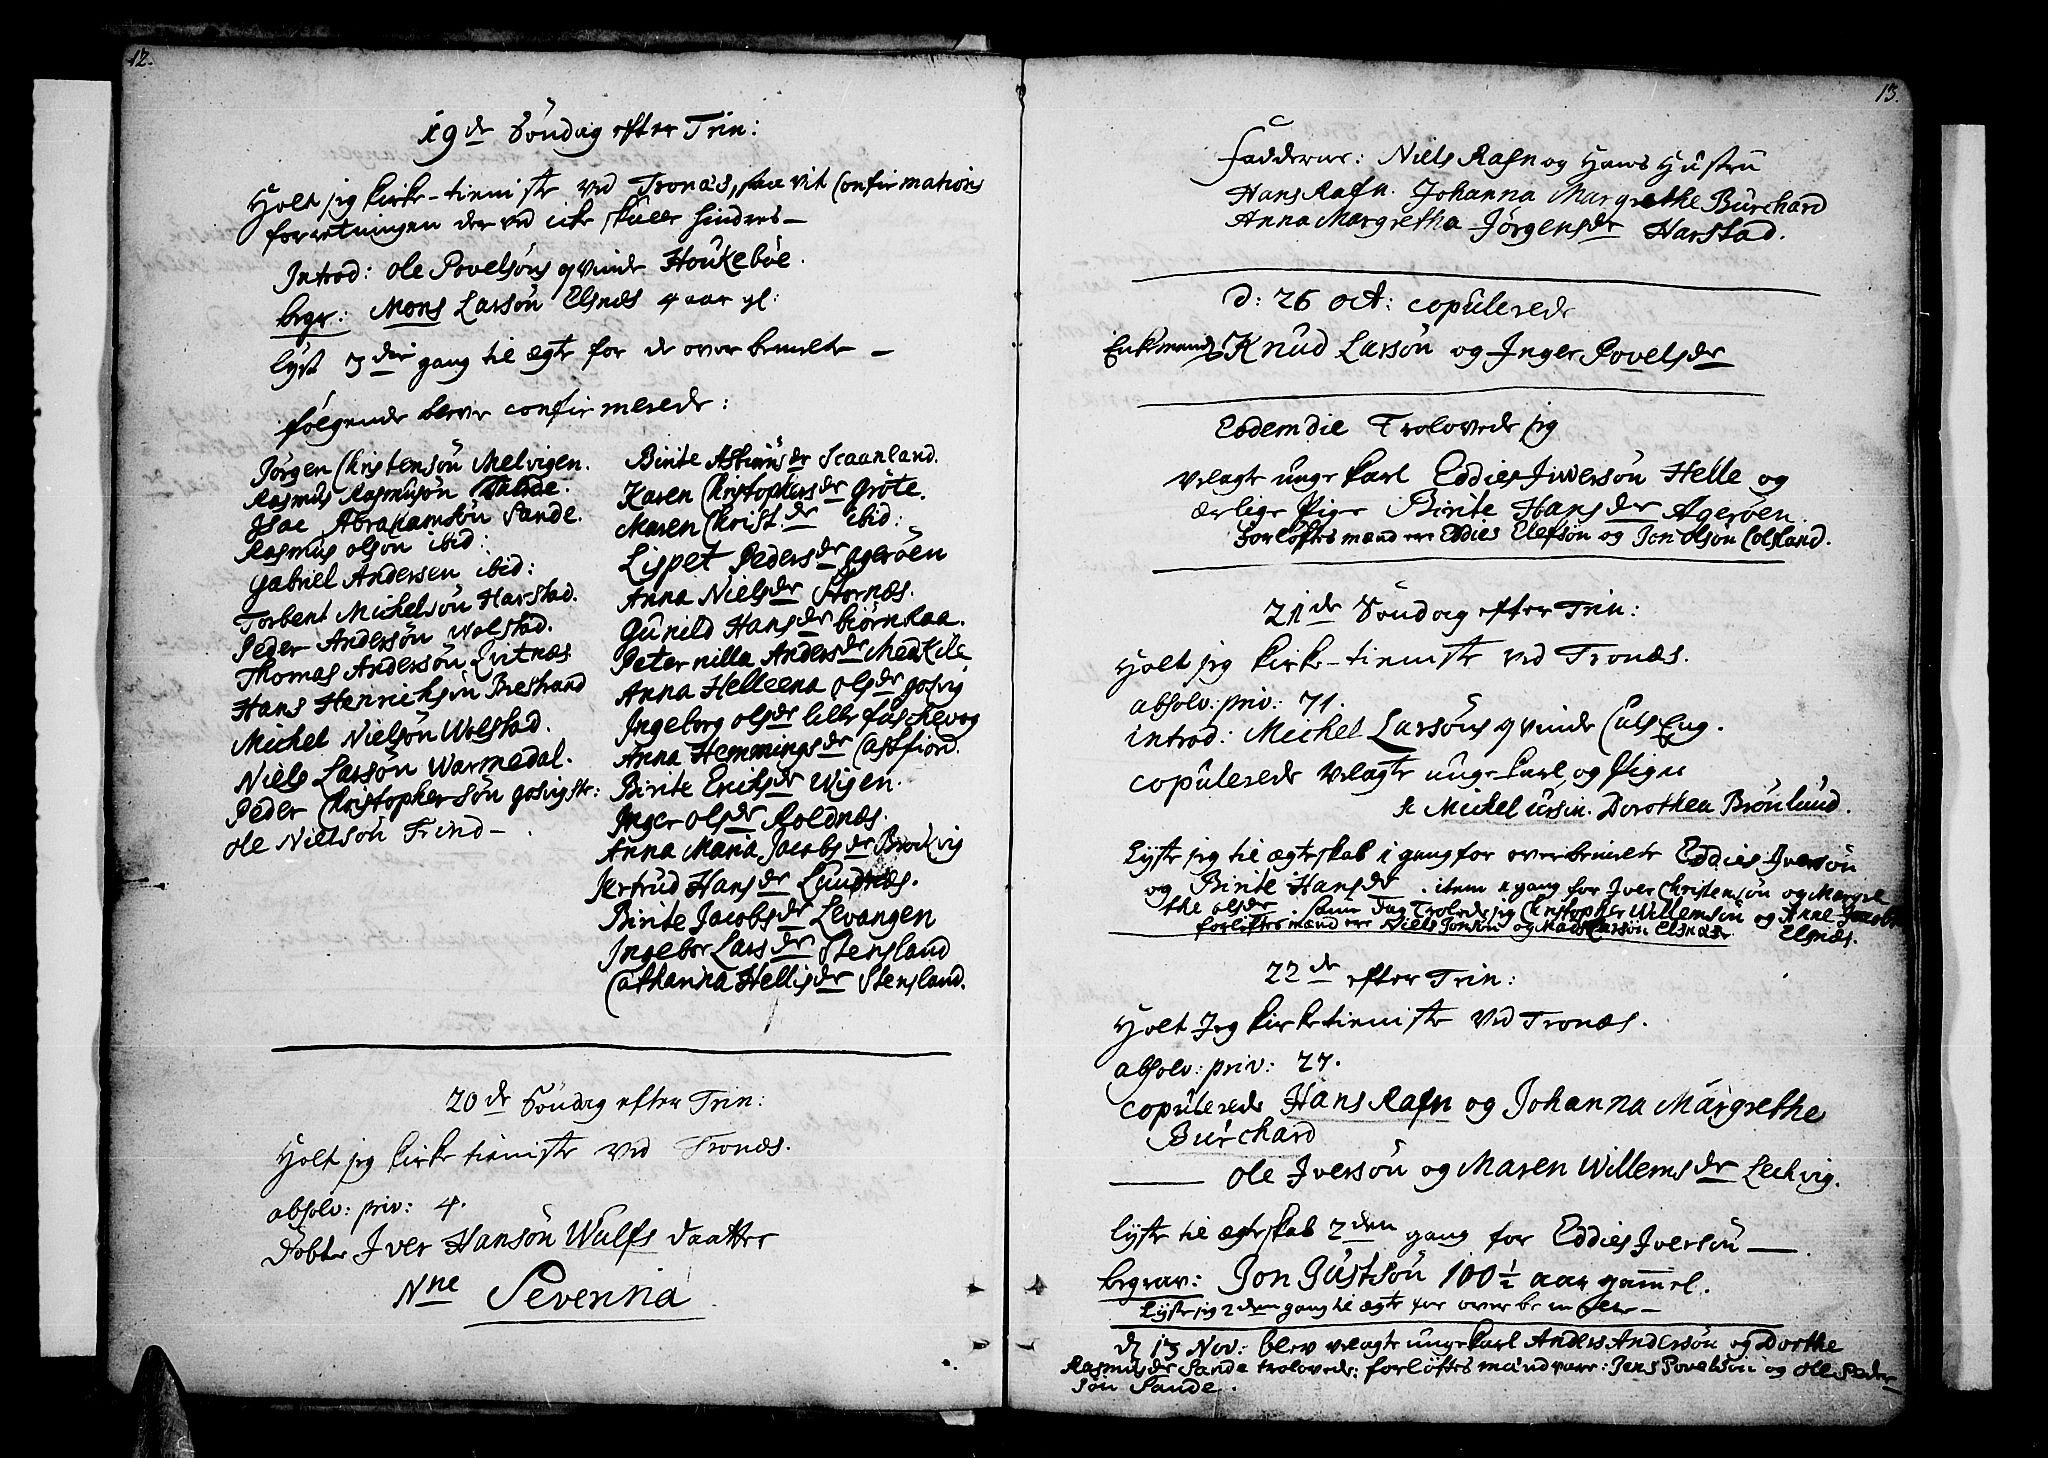 12.
19de Söndag efter Trin:
Holt jeg kirke-tieniste ved Tronæs, paa vit Confirmations
forretningen der ved icke skulle hindres—
Introd: Ole Povelsöns qvinde Houkeböe.
begr: Mons Larsön Elgnæs 4 aar gl:
Lyst 3die gang til ægte for de over bemelte—
fölgende bleve confirmerede:
Jörgen Christensön Melvigen.
Rasmus Rasmusön
Isac Abrahamsön Sande.
Rasmus olsön ibid:
Gabriel Andersen ibid:
Torbent Michelsön Harstad.
Peder Andersön Wolstad.
Thomas Andersön Qvitnæs
Hans Henrichsön Brestrand
Michel Nielsön Wolstad.
Niels Larsön Warmedal.
Peder Christophersön gosvigstr:
Ole Nielsön Trind—
Birite Astinusdr Scaanland.
Karen Christophersdr Gröte.
Maren Christ.dr ibid:
Lispet Pedersdr Ageröen
Anna Nielsdr Stornæs.
Gunild Hansdr biörnRaa.
Peternilla Andersdr Medkile
Anna Helleena olsdr gosvig
Ingeborg olsdr lille fuschevog
Anna Hemmingsdr Castfiord.
Birite Erichsdr Wigen.
Inger olsdr Roldnæs.
Anna Maria Jacobsdr Brockvig
Jertrud Hansdr Lundnæs.
Birite Jacobsdr Levangen
Ingebor Larsdr Stensland
Catharina Hellisdr Stensland.
20de Söndag efter Trin:
Holt jeg kirke tieniste ved Tronæs.
absolv: priv: 4.
Döbte Iver Hansön Wulfs daatter
Nne Severina
13.
Fadderne: Niels Rafn og Hans Hustru
Hans Rafn. Johanna Margrethe Burchard
Anna Margretha Jörgensdr Harstad.
d: 26 oct: copulerede
Enkemand Knud Larsön og Inger Povelsdr
Eodem die Trolovede jeg
velagte unge karl Eddies Iversön Helle og
ærlige Pige Birite Hansdr Ageröen
Forlöftes mænd ere Eddies Elefsön og Jon olsön Colsland.
21de Söndag efter Trin:
Holt jeg kirke-tieniste ved Tronæs.
absolv: priv: 71.
introd: Michel Larsöns qvinde Cals Eng.
copulerede velagte unge karl og Pige
Sr Michel Ursin. Dorothea Brönlund.
Lyste jeg til ægteskab 1 gang for overbemelte Eddies Iversön
og Birite Hansdr. item 1 gang for Iver Christensön og Margre
the olsdr. Samme dag Trolovede jeg Christopher Willemsön og Anne Jacobsdr
forlöftes mænd ere Niels Jonsön og Mads Larsön Elgnæs Elgnæs.
22de efter Trin:
Holt Jeg kirke tieniste ved Tronæs.
absolv: priv: 27.
copulerede Hans Rafn og Johanna Margrethe
Burchard
—— Ole Iversön og Maren Willemsdr Leckvig.
Lyste til ægteskab 2den gang for Eddies Iversön—.
begrav: Jon Gustsön 100½ aar gammel.
Lyste jeg 2den gang til ægte for over be melte—
d 13 Nov: blev velagte unge karl Anders Andersön og Dorthe
Rasmusdr Sande trolovede: forlöftes mænd vare: Jens Povelsön og Ole Peder-
sön Sande.